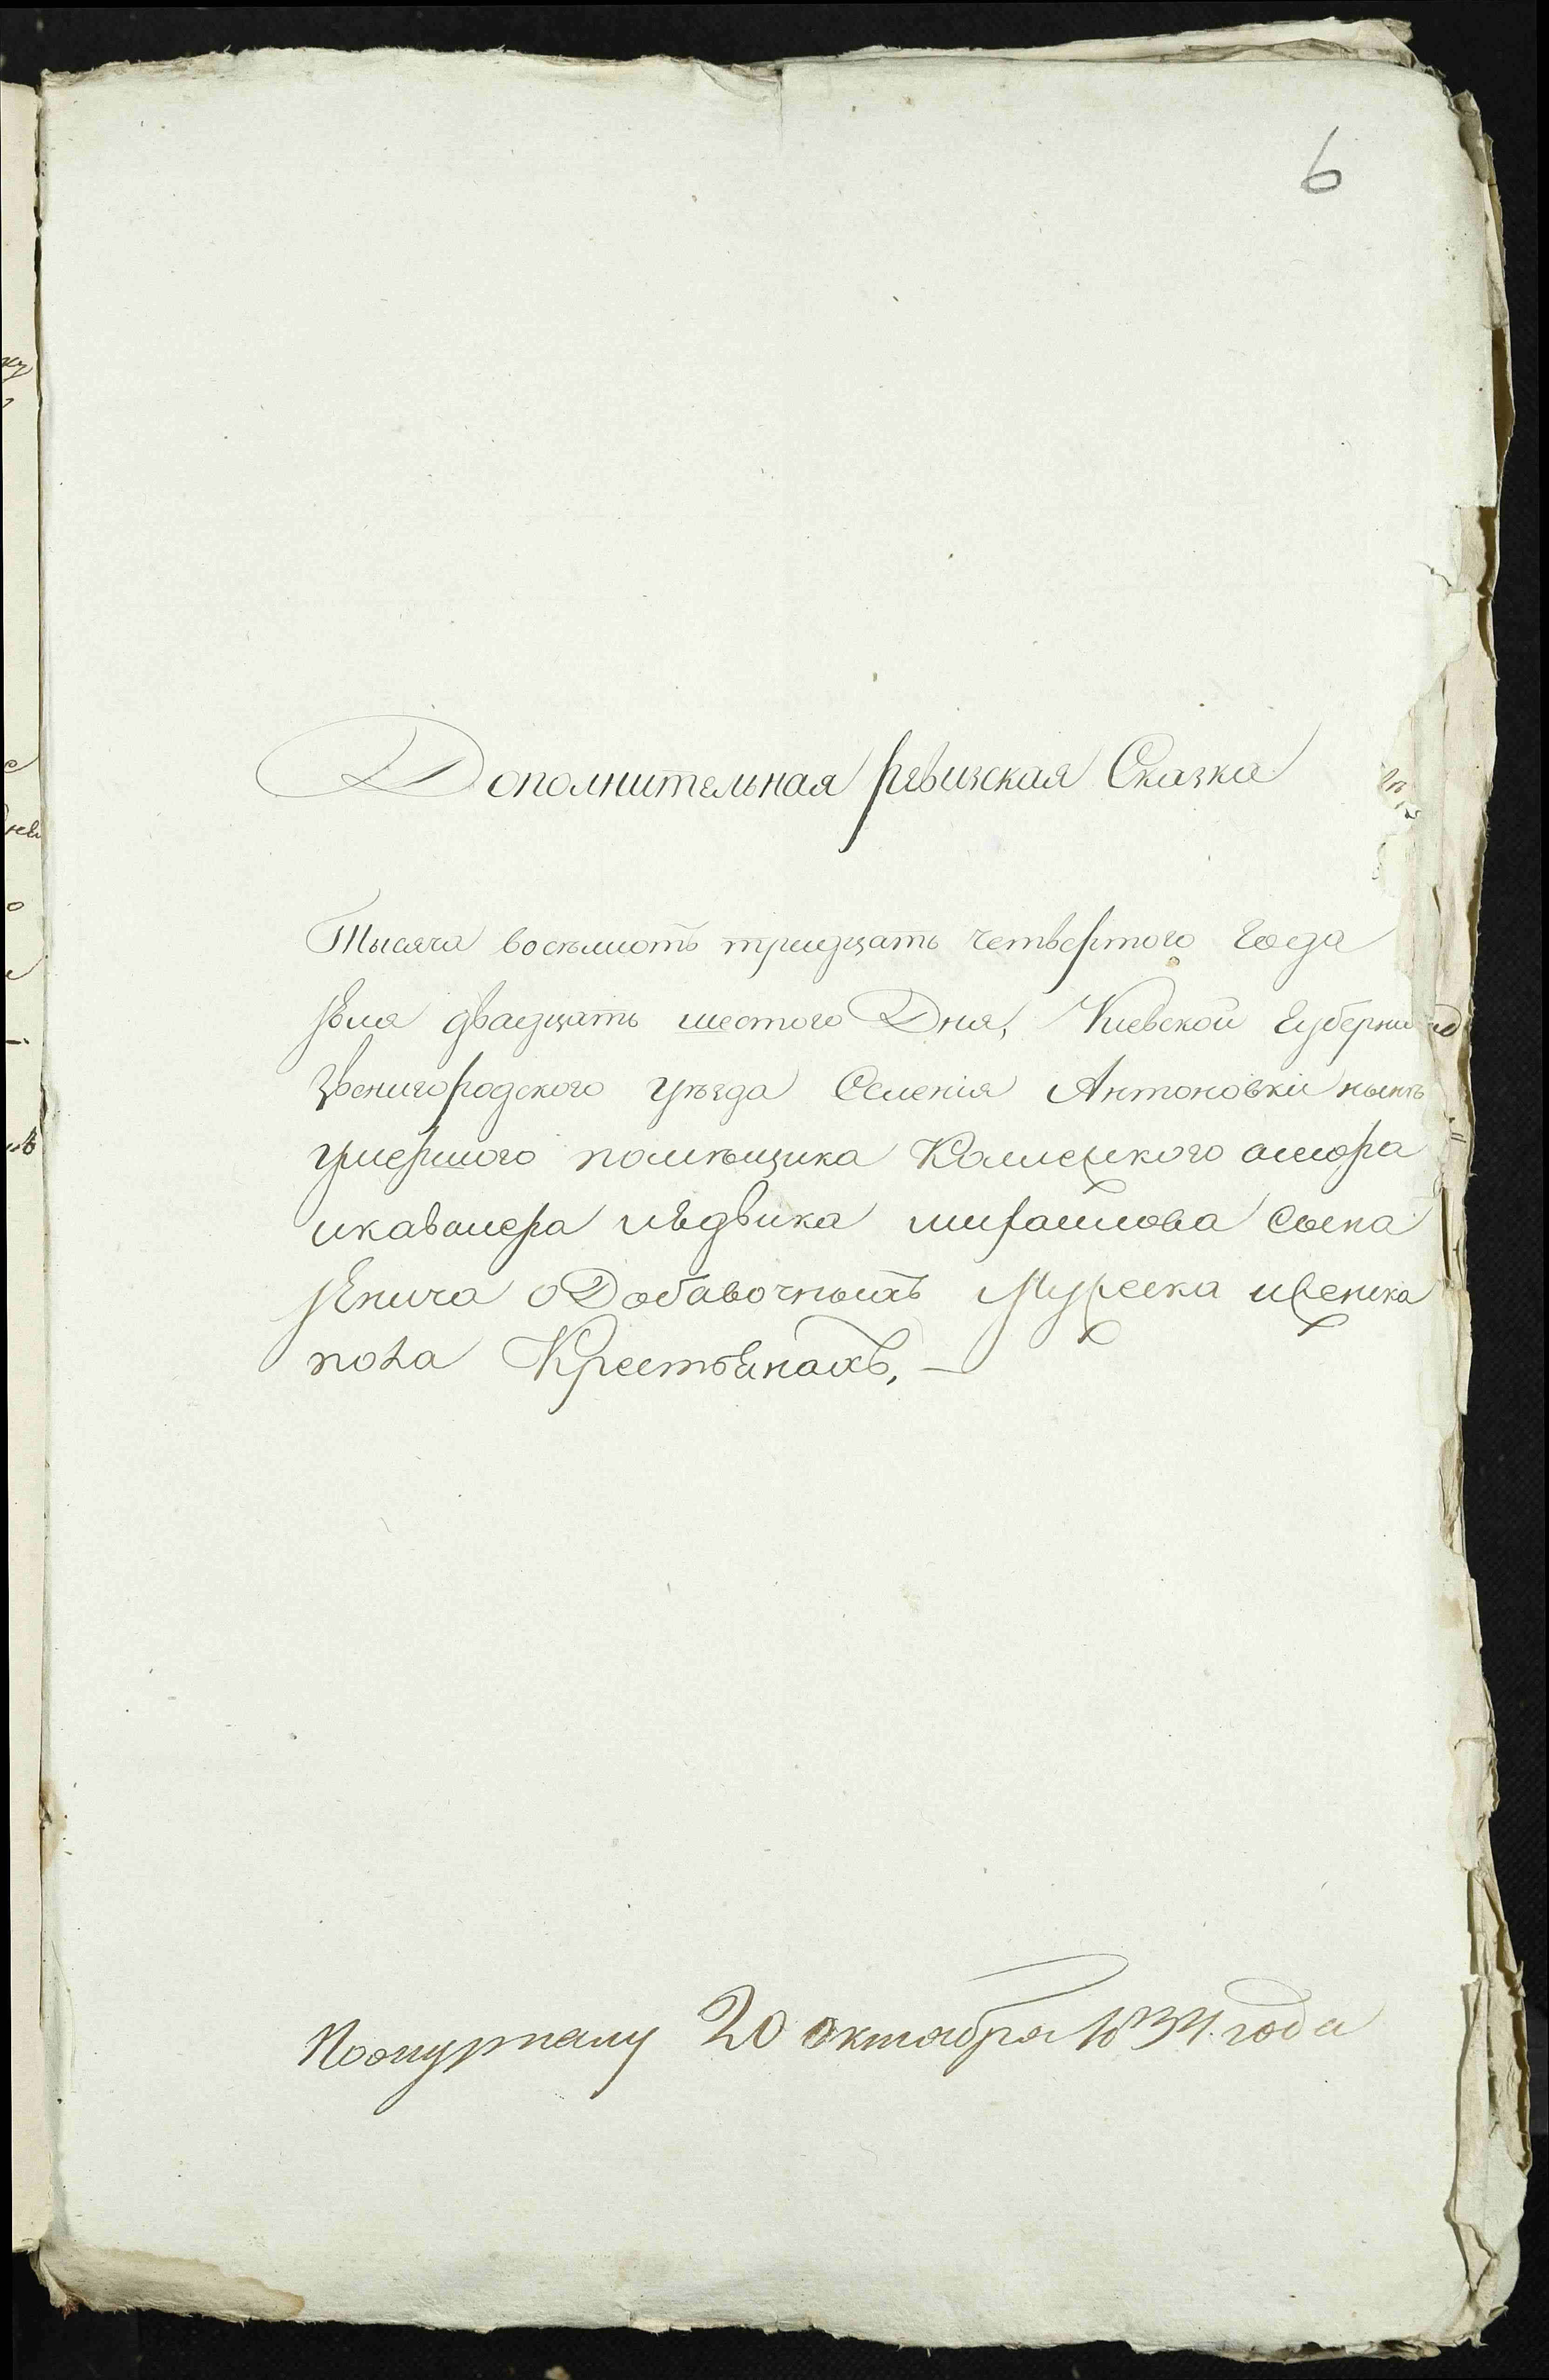 6
Дополнительная ревизская Сказка
Тысяча восемьсотъ тридцать четвертого Года
двадцать шестого Дня, Киевской Губернии
Звенигородского уѣзда Селенія Антоновки нынѣ
умершого помѣщика Колежского асесора
икавалера михайлова Сына
оДобавочныхъ Мужеска иженска
пола Крестьянахъ, —
20 октября 1834. года